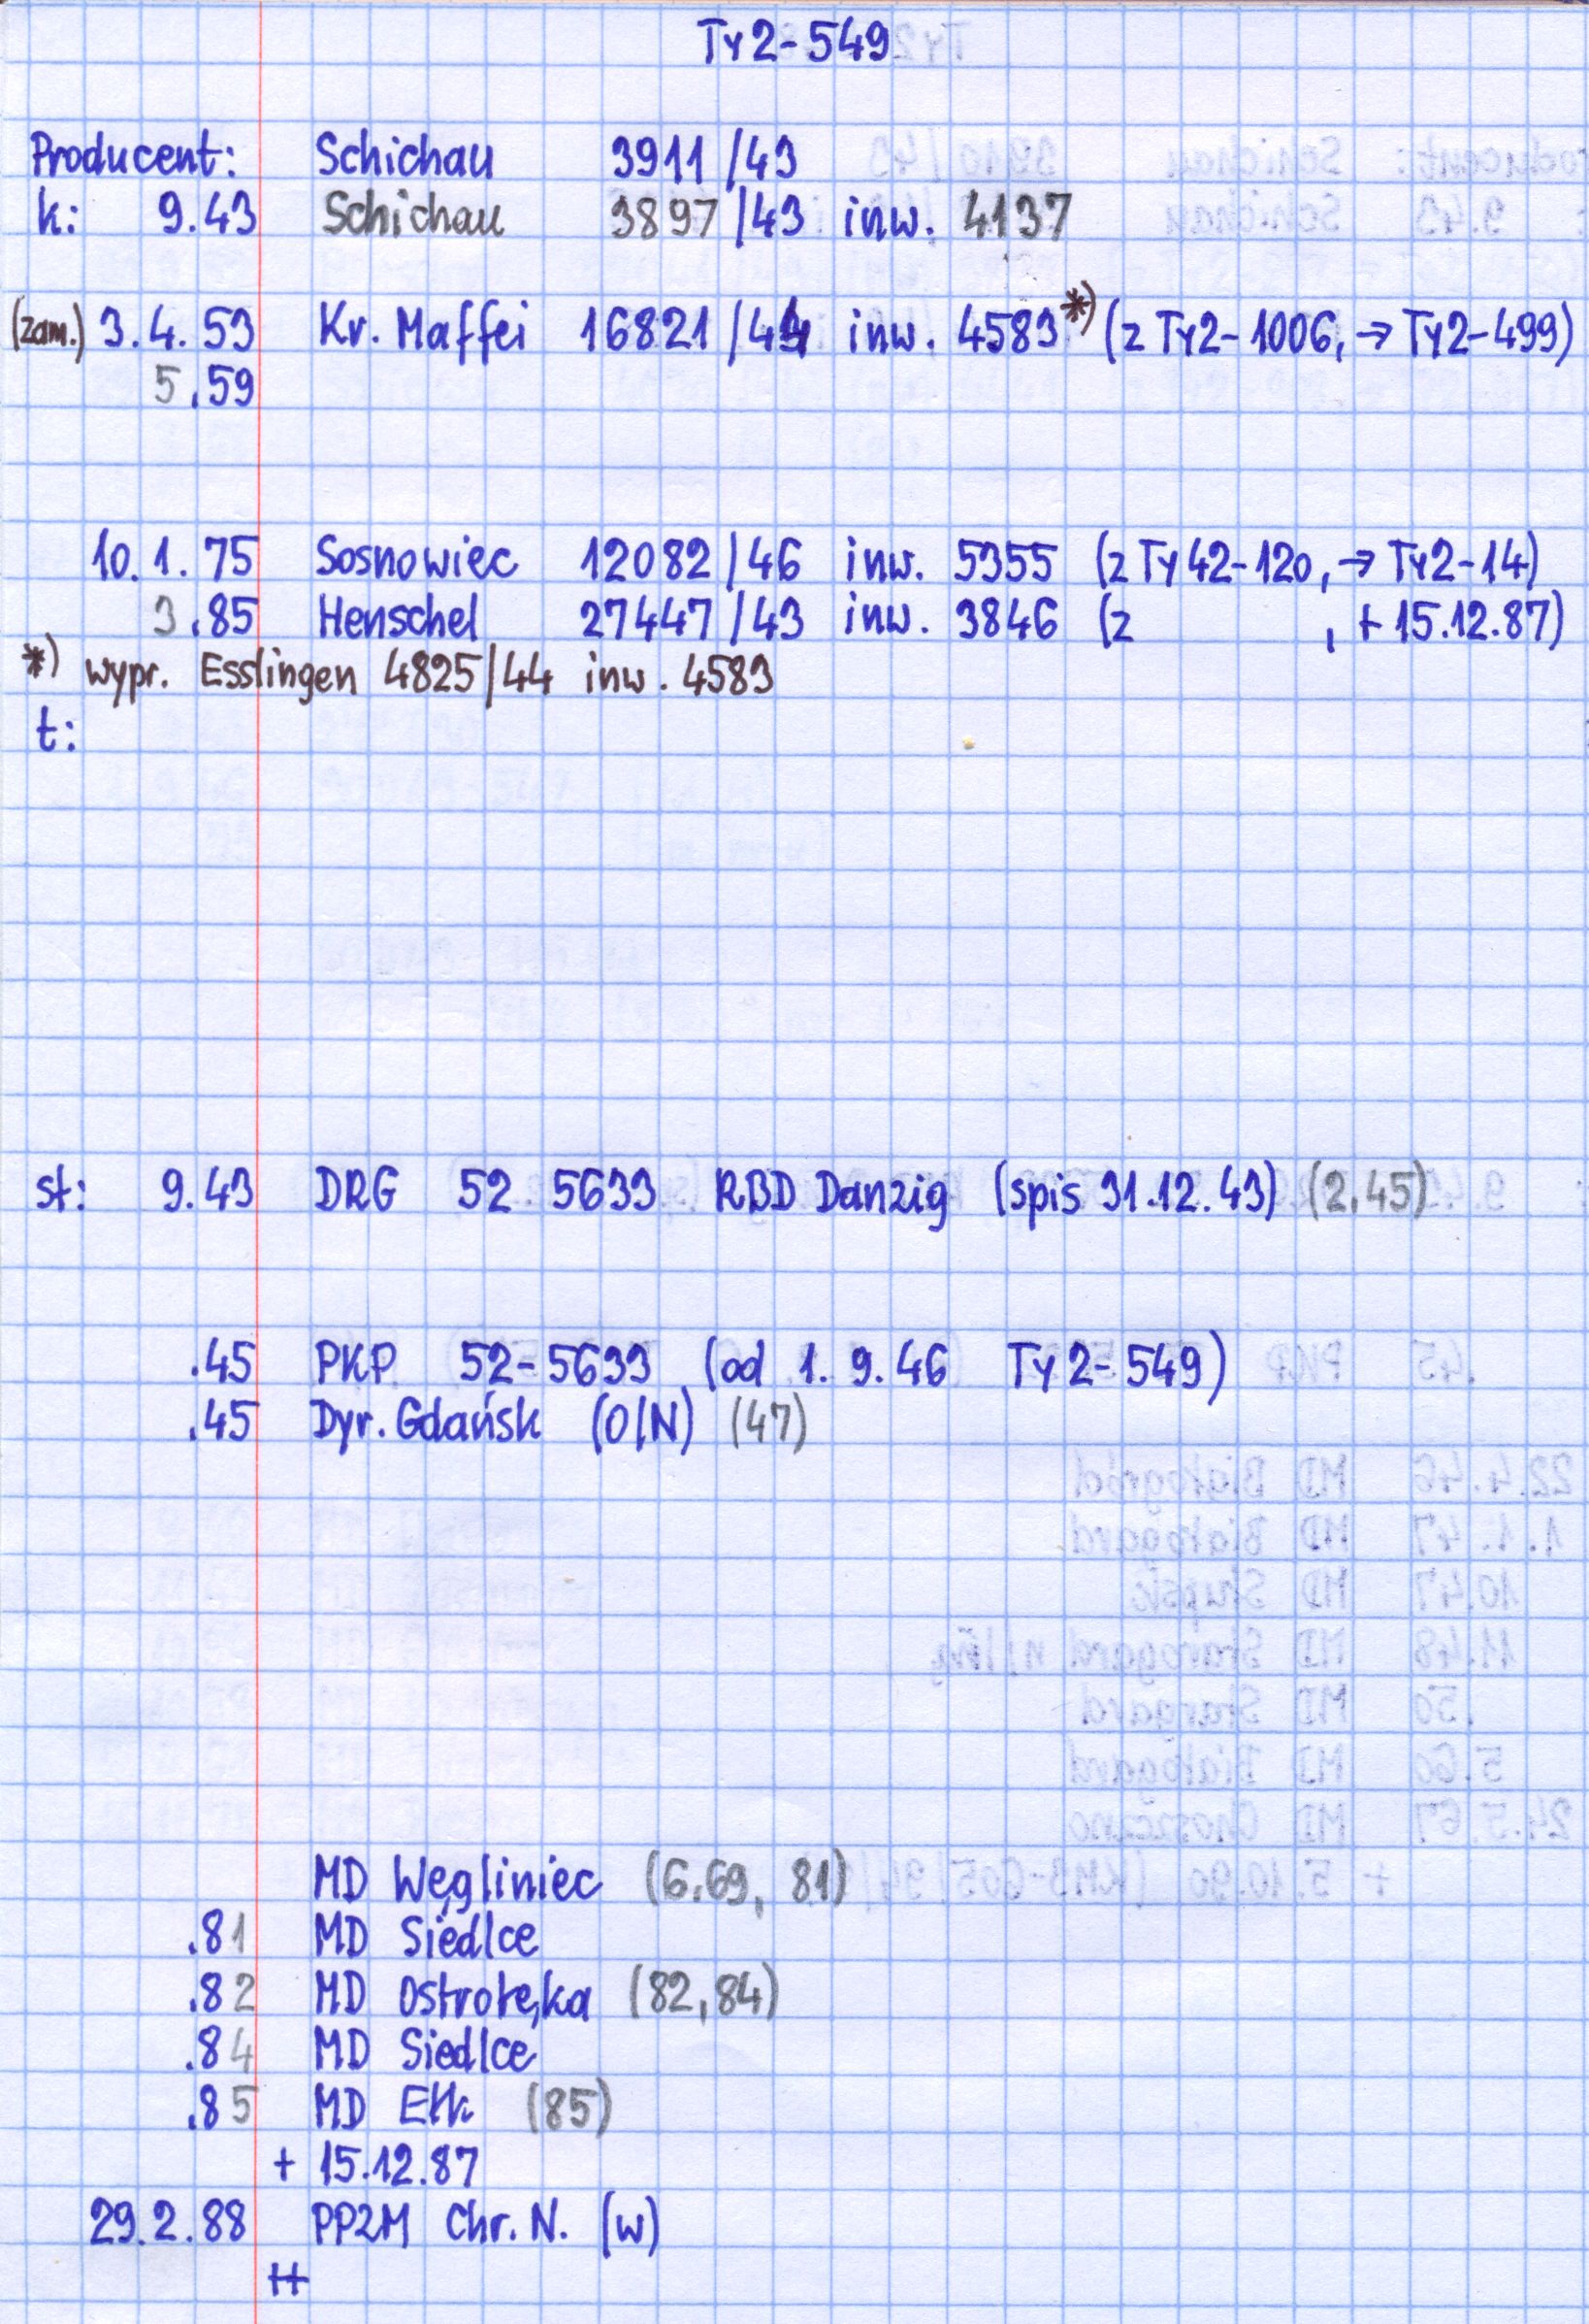 Ty2-549
Producent: Schichau 3911/43
k: 9.43 Schichau 3897/43 inw. 4137
(zam.) 3.4.59 Kr. Maffei 16821/44 inw. 4583*) (z Ty2-1006, → Ty2-499)
5.59
10.1.75 Sosnowiec 12082/46 inw. 5355 (z Ty42-120, → Ty2-14)
3.85 Henschel 27447/43 inw. 3846 (z , + 15.12.87)
*) wypr. Esslingen 4825/44 inw. 4583
t:
st: 9.43 DRG 52 5633 RBD Danzig (spis 31.12.43) (2.45)
.45 PKP 52-5633 (od 1.9.46 Ty2-549)
.45 Dyr. Gdańsk (O/N) (47)
MD Węgliniec (6.69, 81)
.81 MD Siedlce
.82 MD Ostrołęka (82,84)
.84 MD Siedlce
.85 MD Ełk (85)
+ 15.12.87
29.2.88 PPZM Chr. N. (w)
++